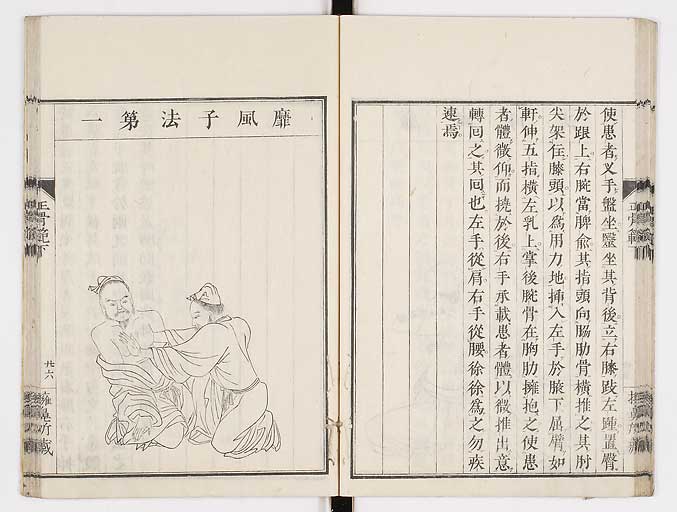 使患者叉手盤坐醫坐其背後立右膝跂左踵置臀
於跟上右腕當脾兪其指頭向脇肋骨橫推之其肘
尖架在膝頭以爲用力地插入左手於腋下屈臂如
軒伸五指橫左乳上掌後腕骨在胸肋擁抱之使患
者體微仰而撓於後右手承載患者體以微推出意
轉回之其回也左手從肩右手從腰徐徐爲之勿疾
速焉
靡風子法第一
正骨範下
廿六